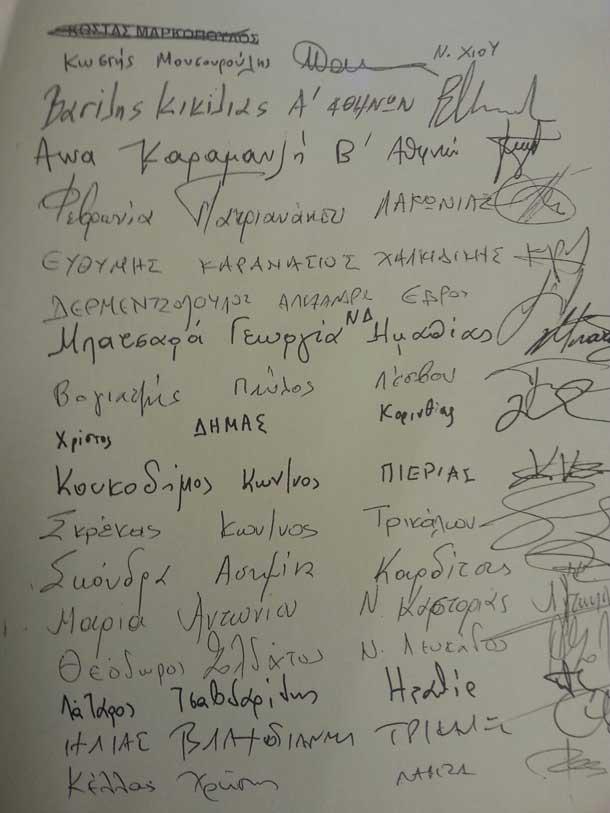 ΚΩΣΤΑΣ ΜΑΡΚΟΠΟΥΛΟΣ
Κωστής Μουσουρούλης Ν. ΧΙΟΥ
Βασίλης Κικίλιας Α' ΑΘΗΝΩΝ
Άννα Καραμανλή Β' Αθηνών
Φεβρωνία Πατριανάκου ΛΑΚΩΝΙΑΣ
ΕΥΘΥΜΗΣ ΚΑΡΑΝΑΣΙΟΣ ΧΑΛΚΙΔΙΚΗΣ
ΔΕΡΜΕΝΤΖΟΠΟΥΛΟΣ ΑΛΕΞΑΝΔΡΟΣ ΕΒΡΟΥ
Μπατσαρά Γεωργία ΝΔ Ημαθίας
Βογιατζής Παύλος Λέσβου
Χρίστος ΔΗΜΑΣ Κορινθίας
Κουκοδήμος Κων/νος ΠΙΕΡΙΑΣ
Σκρέκας Κων/νος Τρικάλων
Σκόνδρα Ασημίνα Καρδίτσας
Μαρία Αντωνίου Ν. Καστοριάς
Θεόδωρος Σολδάτος Ν. Λευκάδος
Λάζαρος Τσαβδαρίδης Ημαθία
ΗΛΙΑΣ ΒΛΑΧΟΓΙΑΝΝΗΣ ΤΡΙΚΑΛΑ
Κέλλας Χρήστος ΛΑΡΙΣΑ